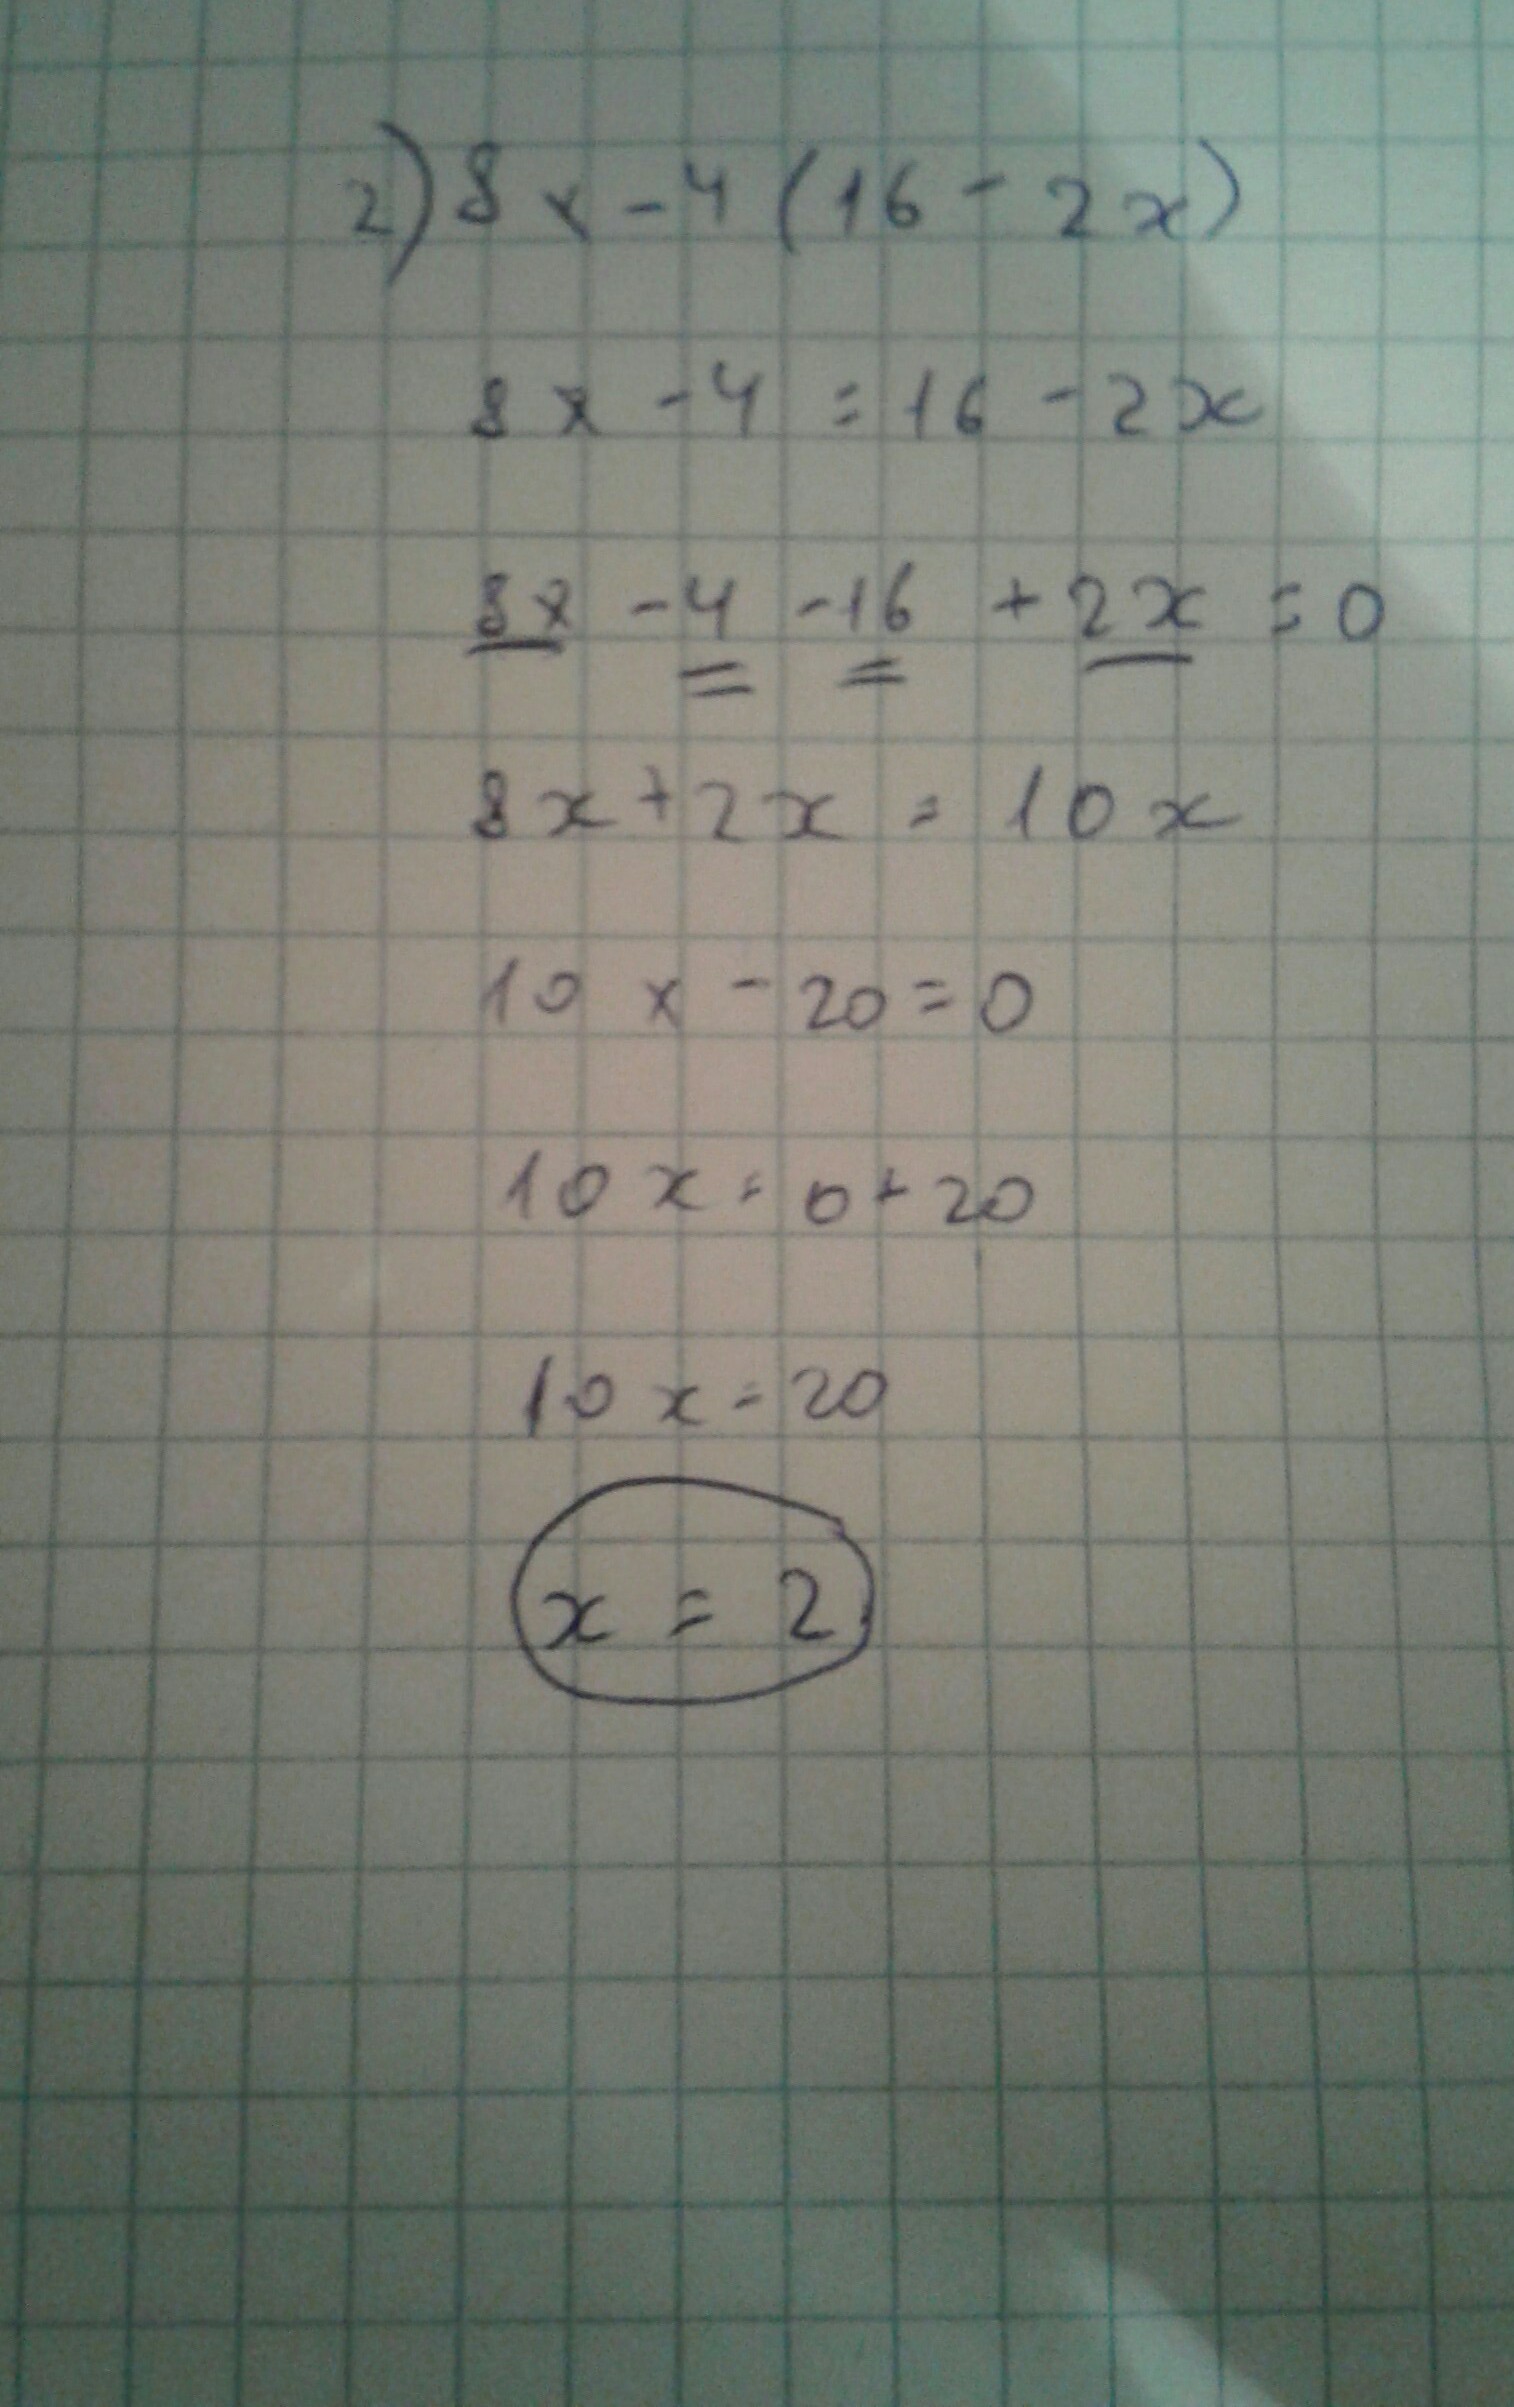 2) 8x - 4 (16 - 2x)
8x - 4 = 16 - 2x
8x - 4 - 16 + 2x = 0
8x + 2x = 10x
10x - 20 = 0
10x = 0 + 20
10x = 20
x = 2